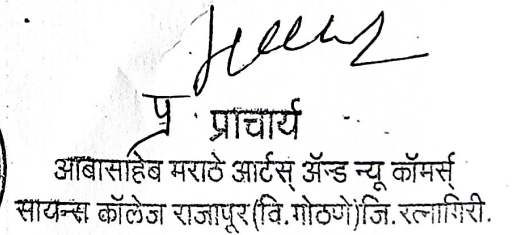 प्र प्राचार्य
आबासाहेब मराठे आर्टस् ॲन्ड न्यू कॉमर्स्
सायन्स कॉलेज राजापूर(वि.गोठणे)जि.रत्नागिरी.